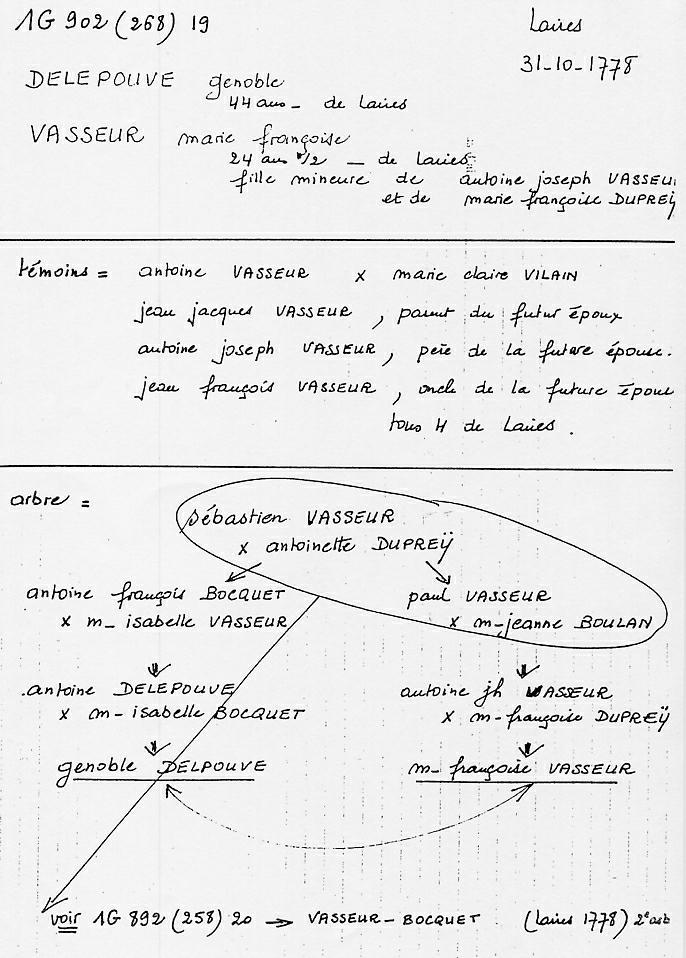 1G 902 (268) 19 Laires
31-10-1778
DELEPOUVE genoble
44 ans - de Laires
VASSEUR marie françoise
24 ans 1/2 - de Laires
fille mineure de antoine joseph VASSEUR
et de marie françoise DUPREŸ
témoins = antoine VASSEUR x marie claire VILAIN
jean jacques VASSEUR, parent du futur époux
antoine joseph VASSEUR, père de la future épouse.
jean françois VASSEUR, oncle de la future épouse
tous 4 de Laires.
arbre =
sébastien VASSEUR
x antoinette DUPREŸ
antoine françois BOCQUET paul VASSEUR
x m- isabelle VASSEUR x m-jeanne BOULAN
antoine DELEPOUVE antoine jh VASSEUR
x m- isabelle BOCQUET x m-françoise DUPREŸ
genoble DELPOUVE m- françoise VASSEUR
voir 1G 892 (258) 20 → VASSEUR - BOCQUET (Laires 1778) 2e